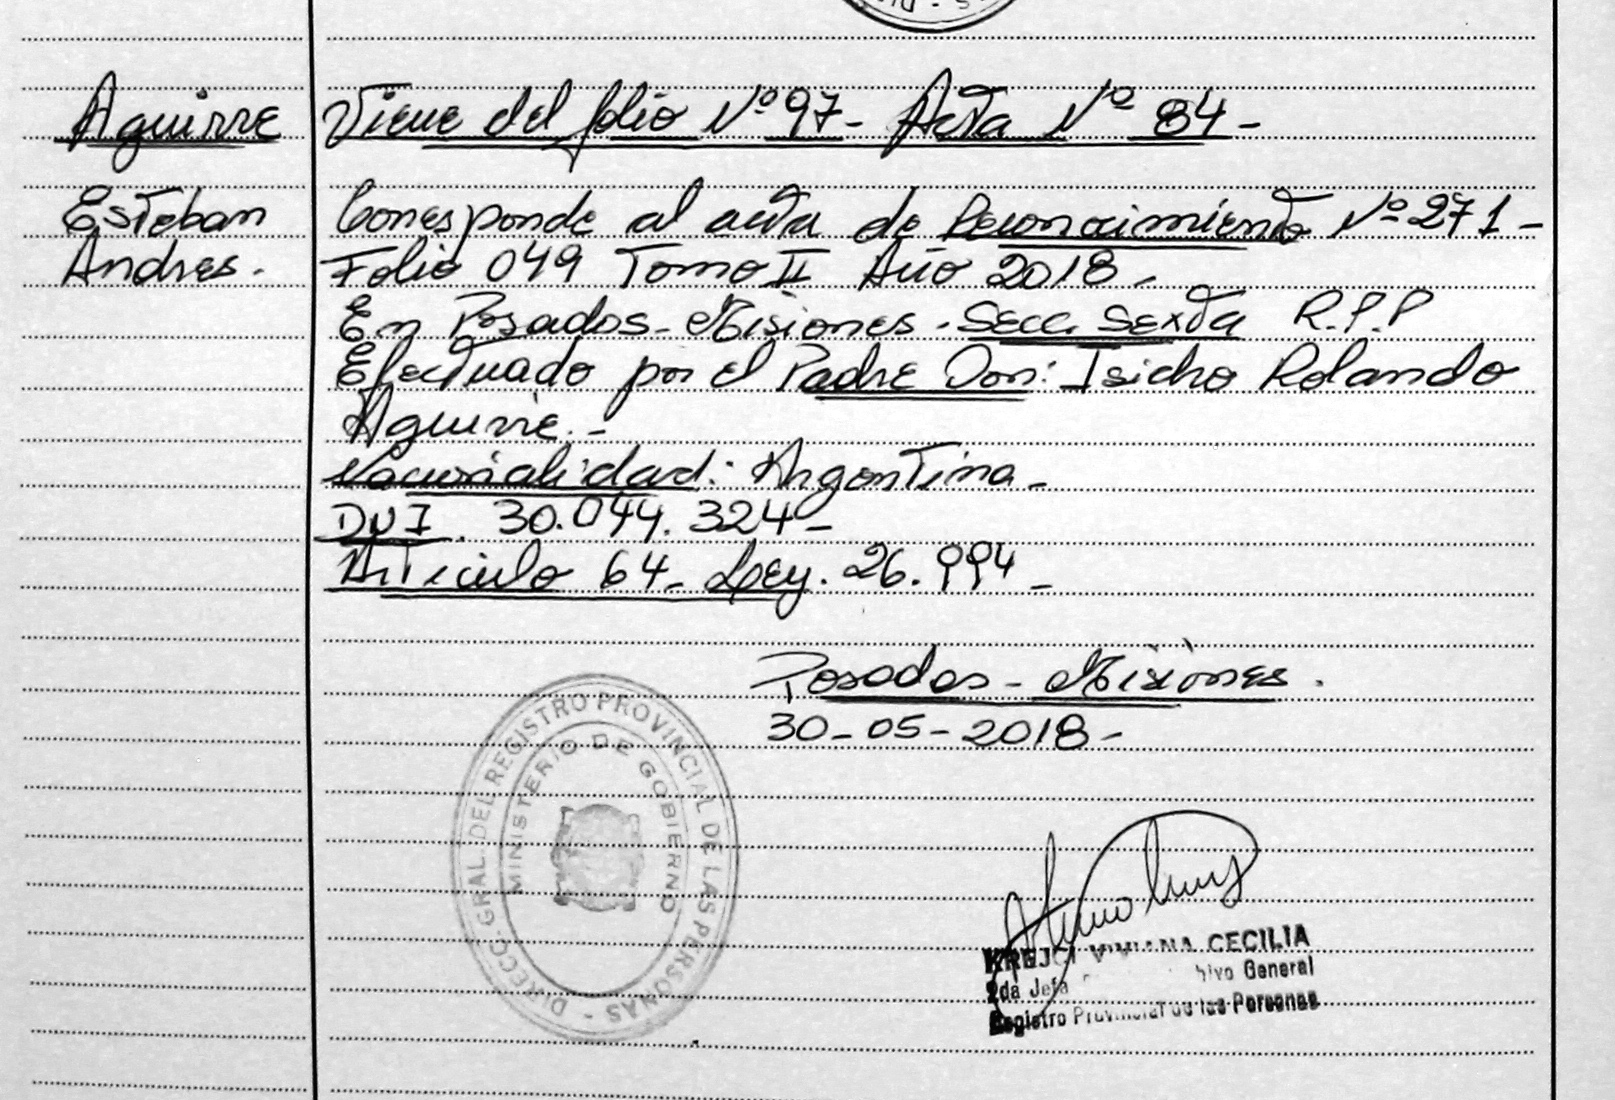 Aguirre
Viene del folio Nº 97 - Acta Nº 84 -
Esteban
Andres.
Corresponde al acta de Reconocimiento Nº 271 -
Folio 049 Tomo II Año 2018 -
En Posadas - Misiones. Secc. Sexta R.P.P
Efectuado por el Padre Don: Isidro Rolando
Aguirre. -
Nacionalidad: Argentina -
DNI. 30.044.324 -
Articulo 64 - Ley. 26.994 -
Posadas - Misiones.
30 - 05 - 2018 -
DIRECC. GRAL. DEL REGISTRO PROVINCIAL DE LAS PERSONAS -
MINISTERIO DE GOBIERNO
KREJCI VIVIANA CECILIA
2da Jefa General
Registro Provincial de las Personas